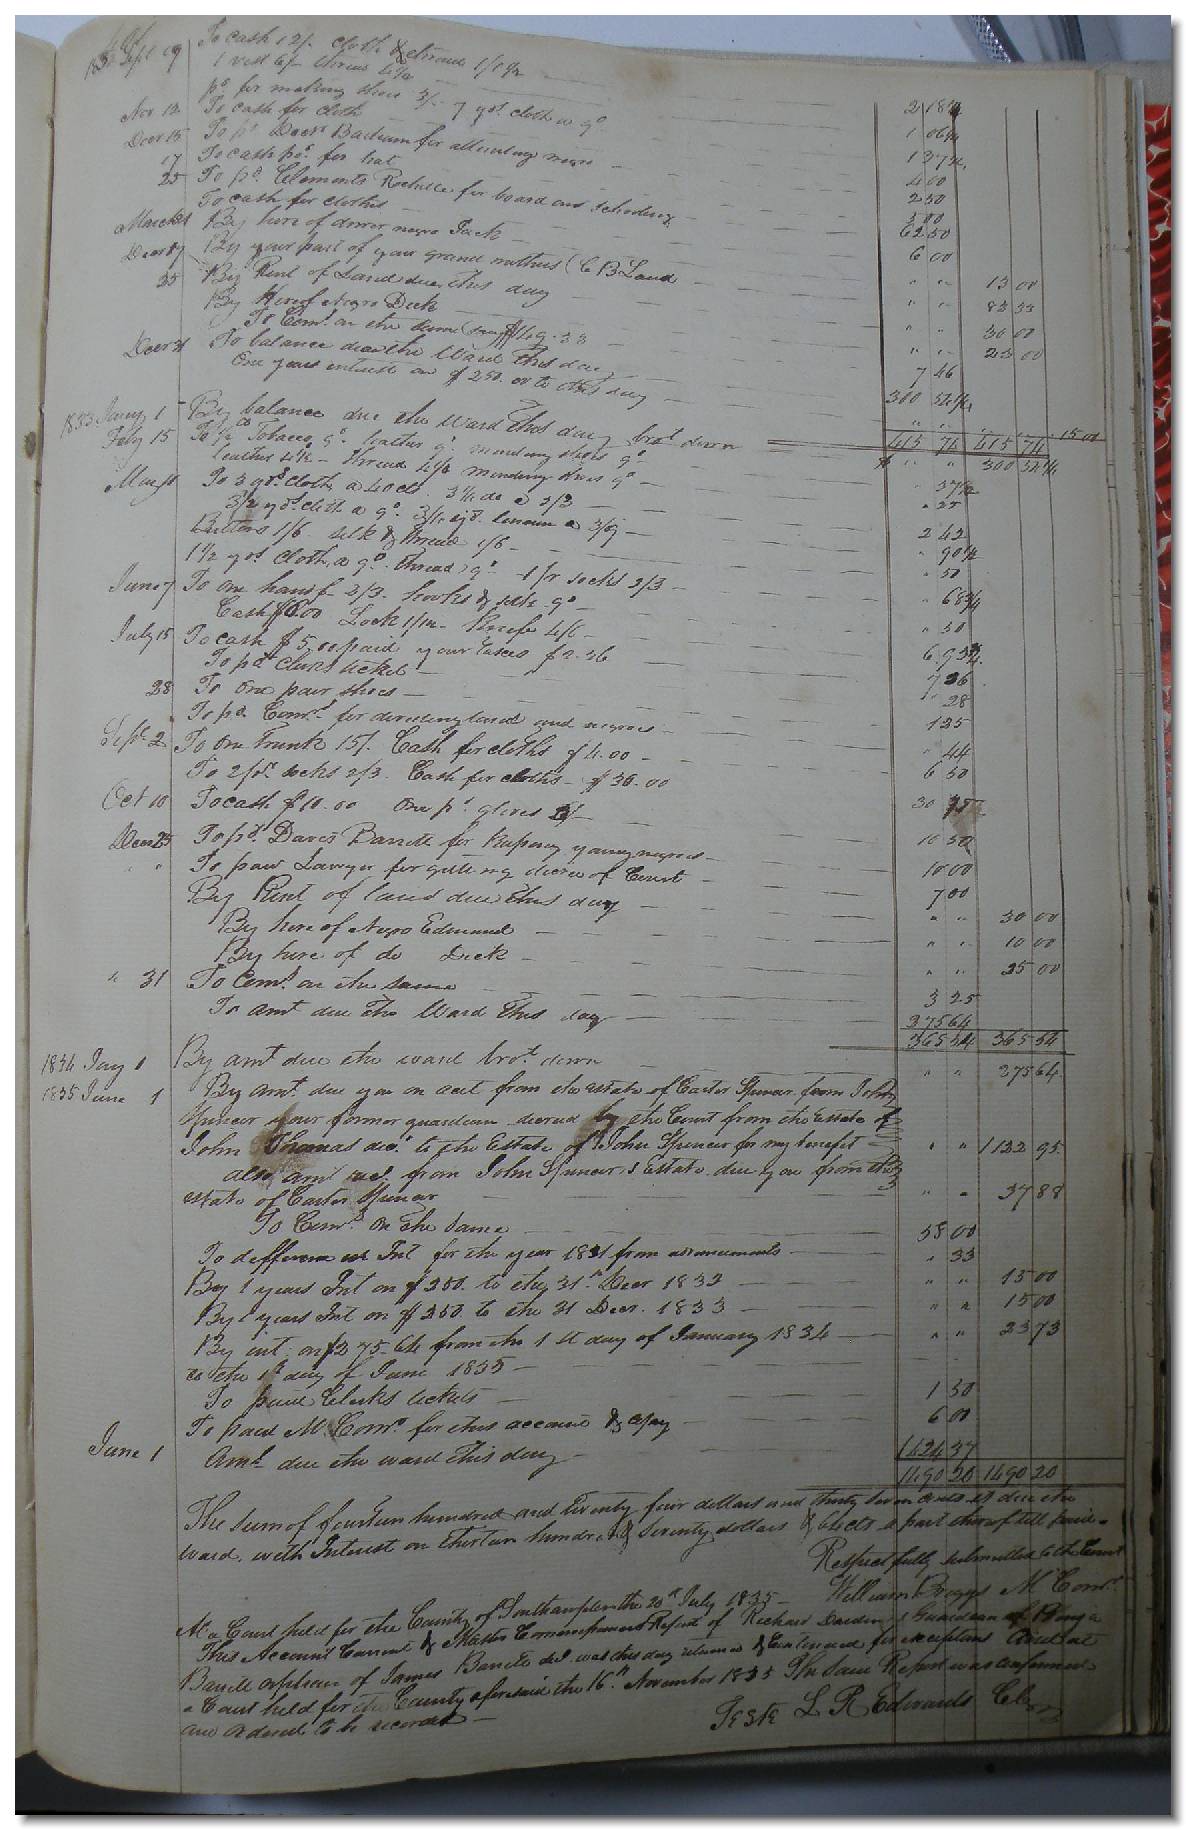 Sept 19 To cash 12/. cloth & thread 1/1½
1 vest 6/- thread 4½
pd for making shoes 3/- 7 yds cloth a 9d 2 18¾
Nov 12 To cash for cloth 1 06¼
Decr 15 To pd Decr for attending negro 1 37½
17 To cash pd for hat 4 00
25 To pd Clements Rochelle for board and schooling 2 50
To cash for clothes
March 1 By hire of drover negro Jack 6 00
Decr By your part of your grand mothers (C B Land " " 13 00
25 By Rent of Land due this day " " 83 33
By Hire of Negro Dick " " 30 00
To Comn. on the same " " 25 00
Decr 31 To balance due the Ward this day 7 46
One years interest on $250. up to this day 300 52¼
" " 15 00
415 76 415 76
1833 Jany 1 By balance due the Ward this day brot. down $ " " 300 52¼
Feby 15 To ½ Tobacco 9d leather 9d mending shoes 9d 37½
leather 4½ - thread 4½ mending shoes 9d " 25
May To 3 yds cloth a 40 cts. 3¼ do a 2/3 2 42
3½ yds cloth a 9d. 3/4 yd. linnen a 3/9 " 90¼
Buttons 1/6. silk & thread 1/6 " 50
1½ yds cloth, a 9d. thread 9d. 1 pr socks 2/3 " 68¾
June 7 To one hankf 2/3. hooks & silk 9d " 50
Cash $6.00 Lock 1/1½ - Knife 4/6 6.93¾
July 15 To cash $5.00 paid your taxes $2.26 7 26
To pd clerks ticket " 28
28 To one pair shoes 1 25
To pd. Comrs. for deviding land and negroes " 44
Sept. 2 To one Trunk 15/. Cash for cloths $4.00 6 50
To 2 prs. socks 2/3. Cash for cloths $30.00 30
Oct 10 To cash $10.00 one pr. gloves 3/ 10 50
Decr 25 To pd. Davis Barrett for keeping young negroes 10 00
" " To paid Lawyer for getting decree of Court 7 00
By Rent of land due this day " " 30 00
By hire of Negro Edmund " " 10 00
By hire of do Dick " " 25 00
" 31 To Comn. on the same 3 25
To amt due the Ward this day 275 64
365 54 365 54
1834 Jay 1 By amt due the ward brot. down " " 275 64
1835 June 1 By amt. due you on acct from the estate of Carter Spencer from John
Spencer your former guardian decreed by the Court from the Estate of
John Thomas decd. to the Estate of John Spencer for my benefit " " 1122 95
also amt recd. from John Spencer's Estate due you from the
estate of Carter Spencer " " 37 88
To Comn. on the Same 58 00
To difference in Int for the year 1831 from announcements " 33
By 1 years Int on $250. to the 31st Decr 1832 " " 15 00
By 1 years Int on $250 to the 31 Decr. 1833 " " 15 00
By int. on $275.64 from the 1st day of January 1834 " " 23 73
to the 1st day of June 1835
To paid Clerks tickets 1 50
To paid M. Comr for this account & copy 6 00
June 1 Amt. due the ward this day 1424 37
1490 20 1490 20
The sum of fourteen hundred and twenty four dollars and thirty seven cents is due the
ward, with Interest on thirteen hundred & seventy dollars & 64 cts a part thereof till paid.
Respectfully submitted to the Court
William Briggs M Comr.
At a Court held for the County of Southampton the 20th July 1835
This Account Current & Master Commissioners Report of Richard Darden Guardian of
Barrett orphan of James Barrett decd. was this day returned & Continued for exceptions And at
a Court held for the County aforesaid the 16th. November 1835 The Same Report was confirmed
and ordered to be recorded
Teste L R Edwards Clk